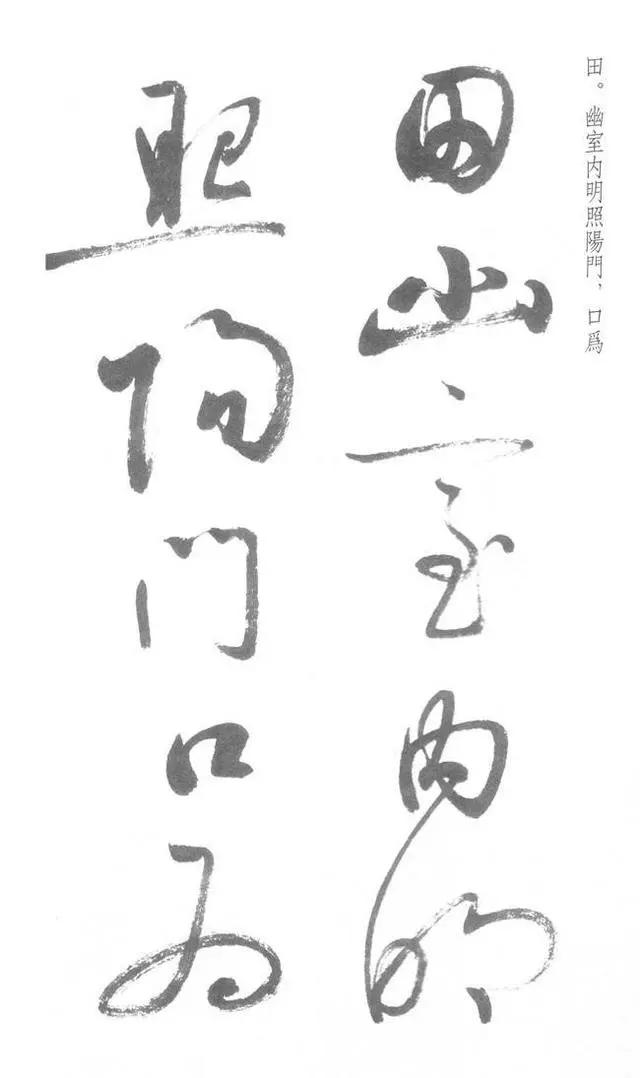 田。幽室内明照陽門，口爲
田幽室内明
照陽門口爲